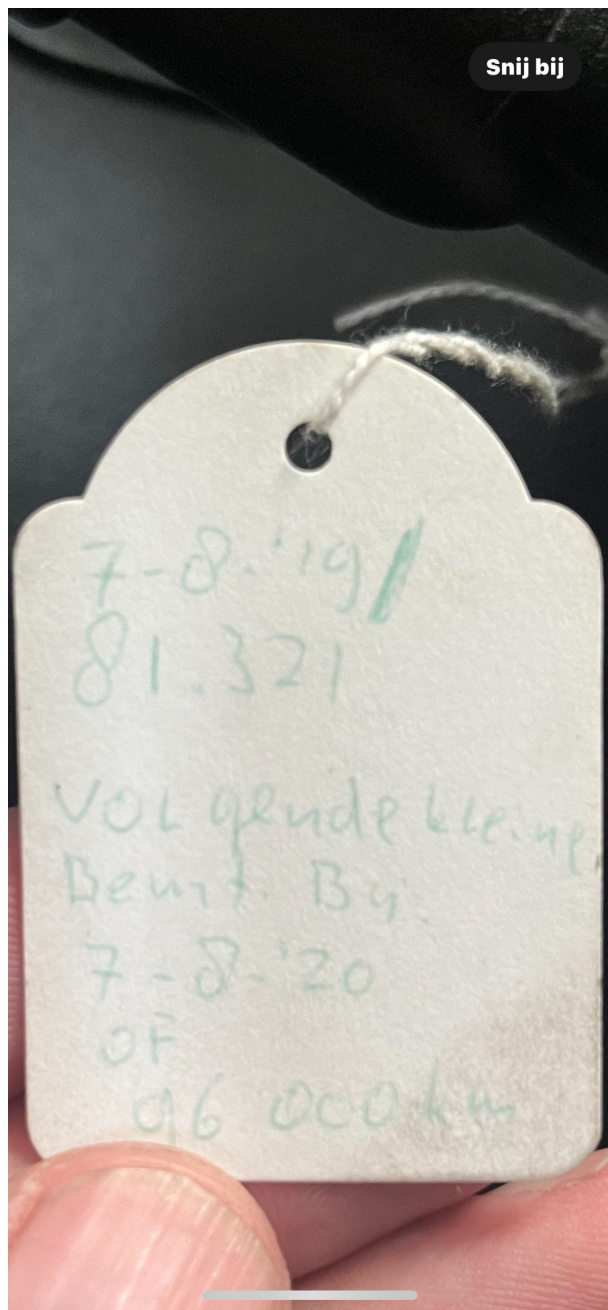 Snij bij
7-8-'19/
81.321
VOLgende kleine
Beurt. Bij.
7-8-'20
OF
96 000 km